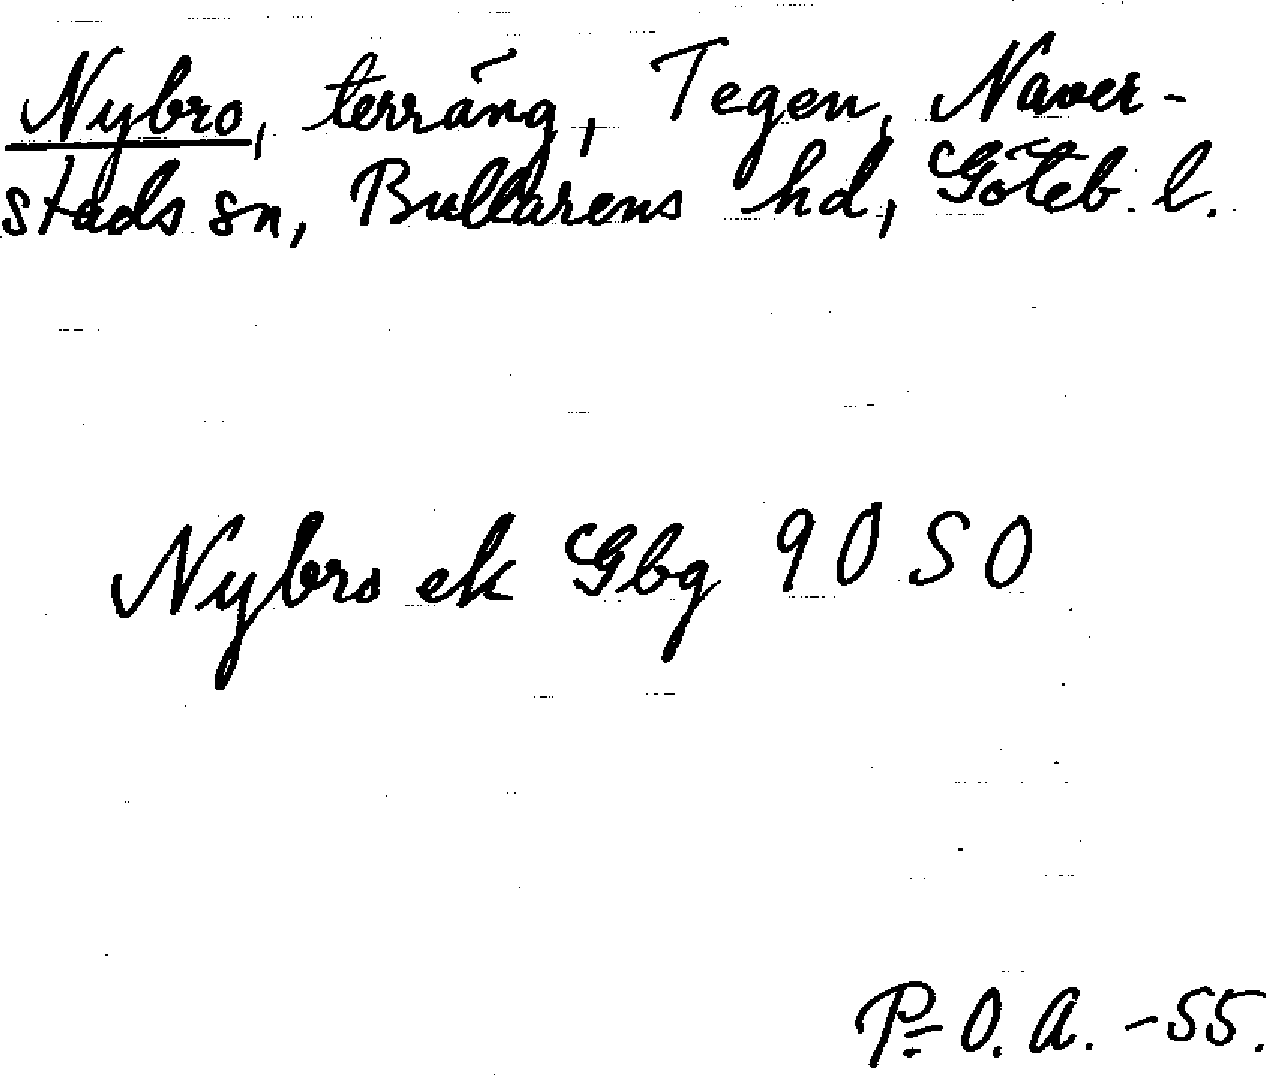 Nybro, terräng, Tegen, Naver-
stads sn, Bullarens hd, Göteb. l.
Nybro ek Gbg 9 0 S O
P-O. A. -55.